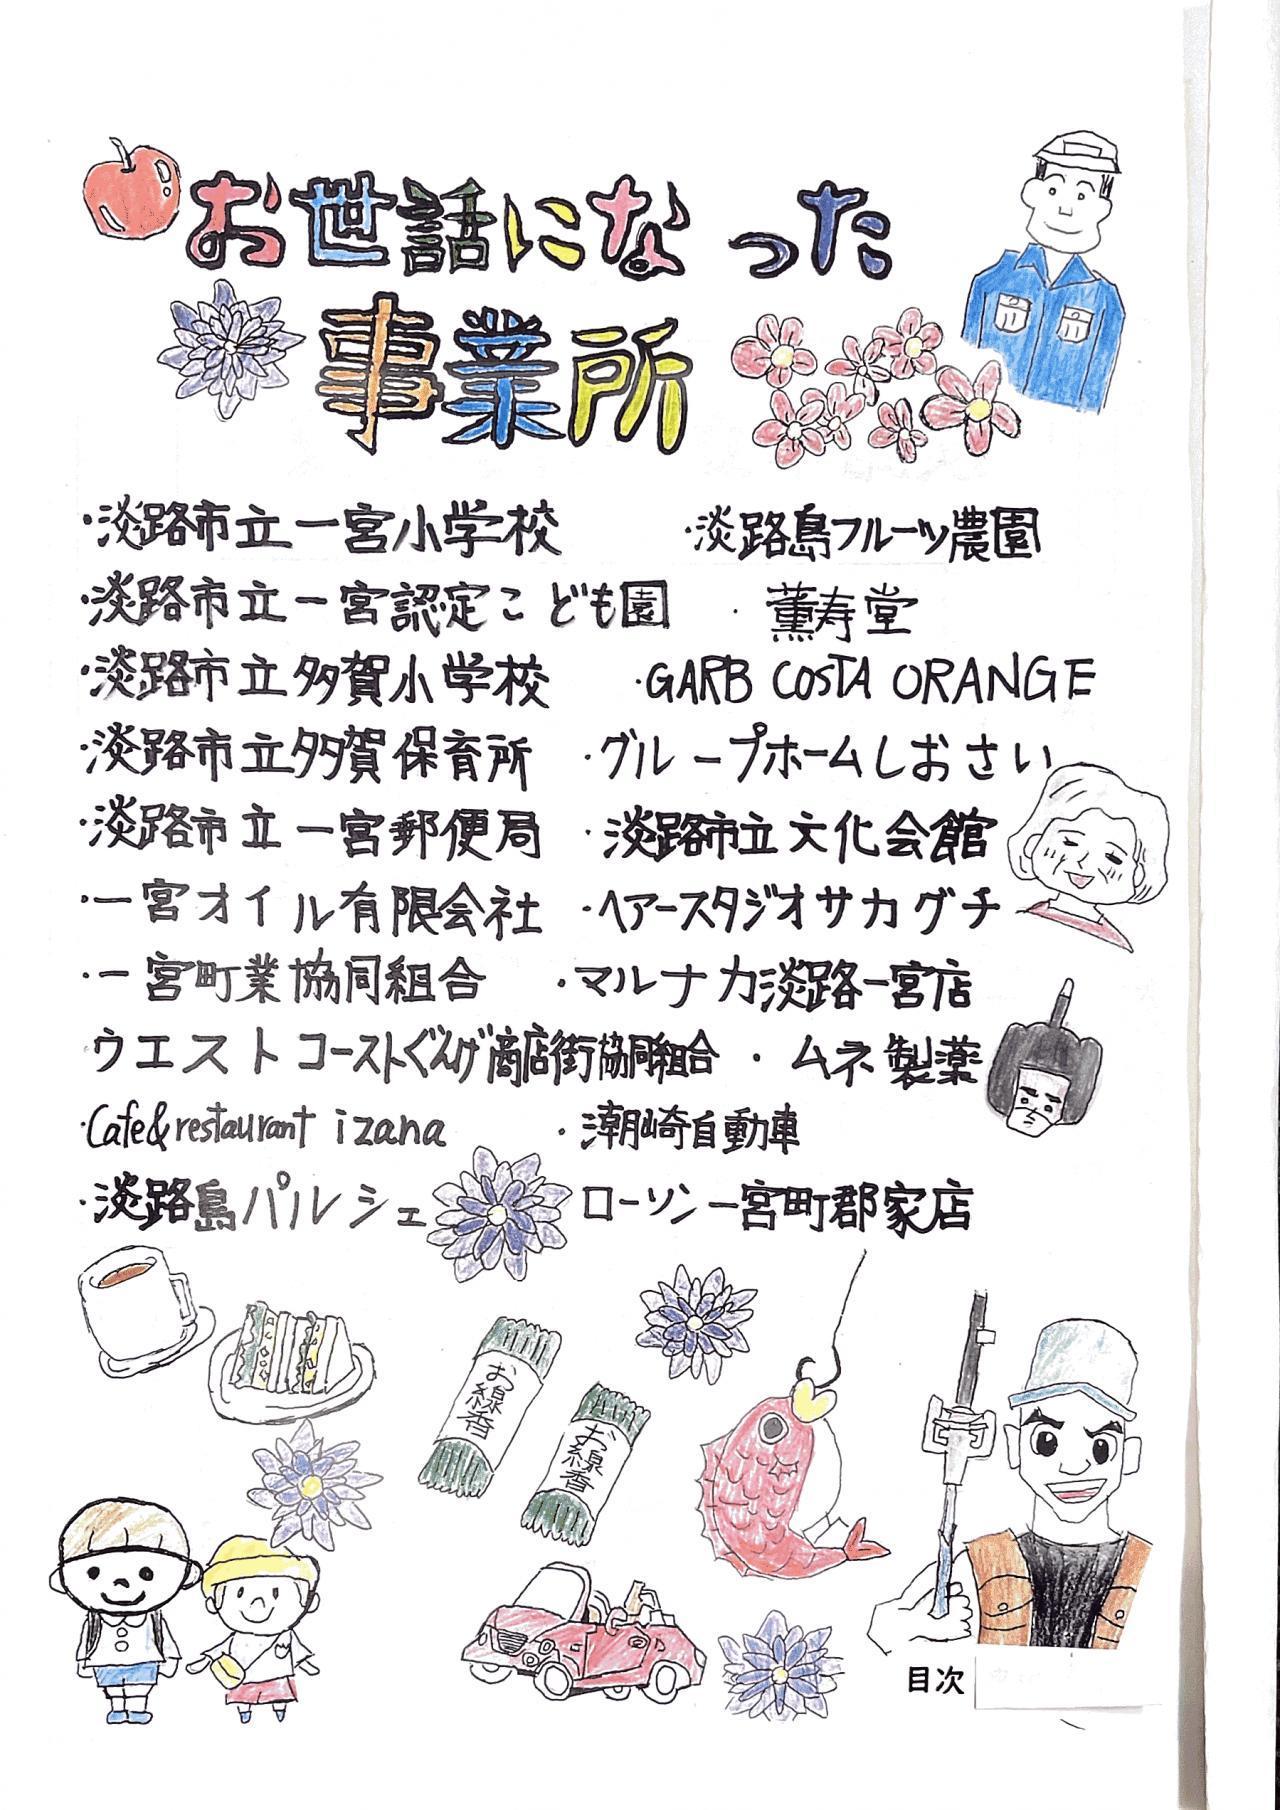 お世話になった
事業所
・淡路市立一宮小学校 ・淡路島フルーツ農園
・淡路市立一宮認定こども園 ・薫寿堂
・淡路市立多賀小学校 ・GARB COSTA ORANGE
・淡路市立多賀保育所 ・グループホームしおさい
・淡路市立一宮郵便局 ・淡路市立文化会館
・一宮オイル有限会社 ・ヘアースタジオサカグチ
・一宮町業協同組合 ・マルナカ淡路一宮店
ウエストコーストぐんげ商店街協同組合 ・ムネ製薬
・Cafe&restaurant izana ・潮崎自動車
・淡路島パルシェ ローソン一宮町郡家店
お線香
お線香
目次